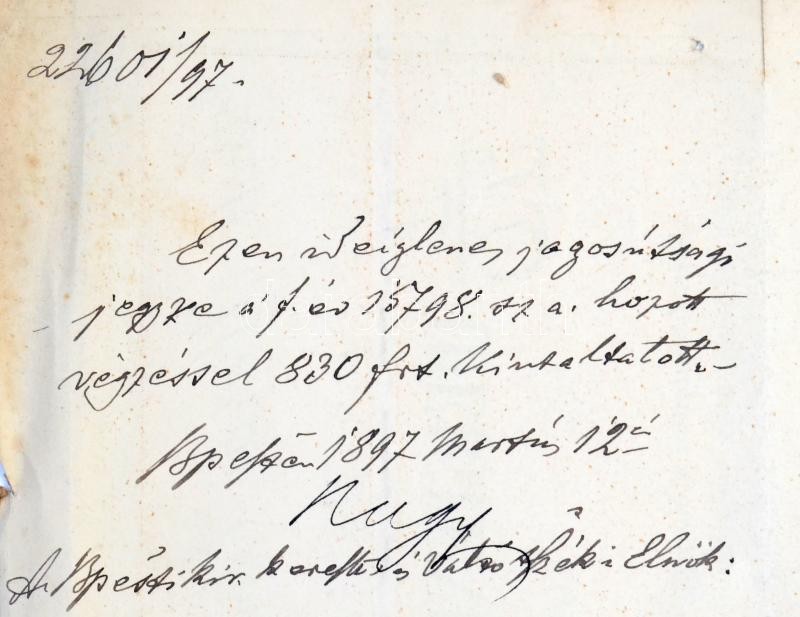 22601/97.
Ezen ideiglenes jogosúltsági
jegyre a f. év 15798. sz a. hozott
végzéssel 830 frt. kiutaltatott.
Bpesten 1897 Martius 12én
Nagy
A Bpesti kir. keresk. és váltó tszéki Elnök: